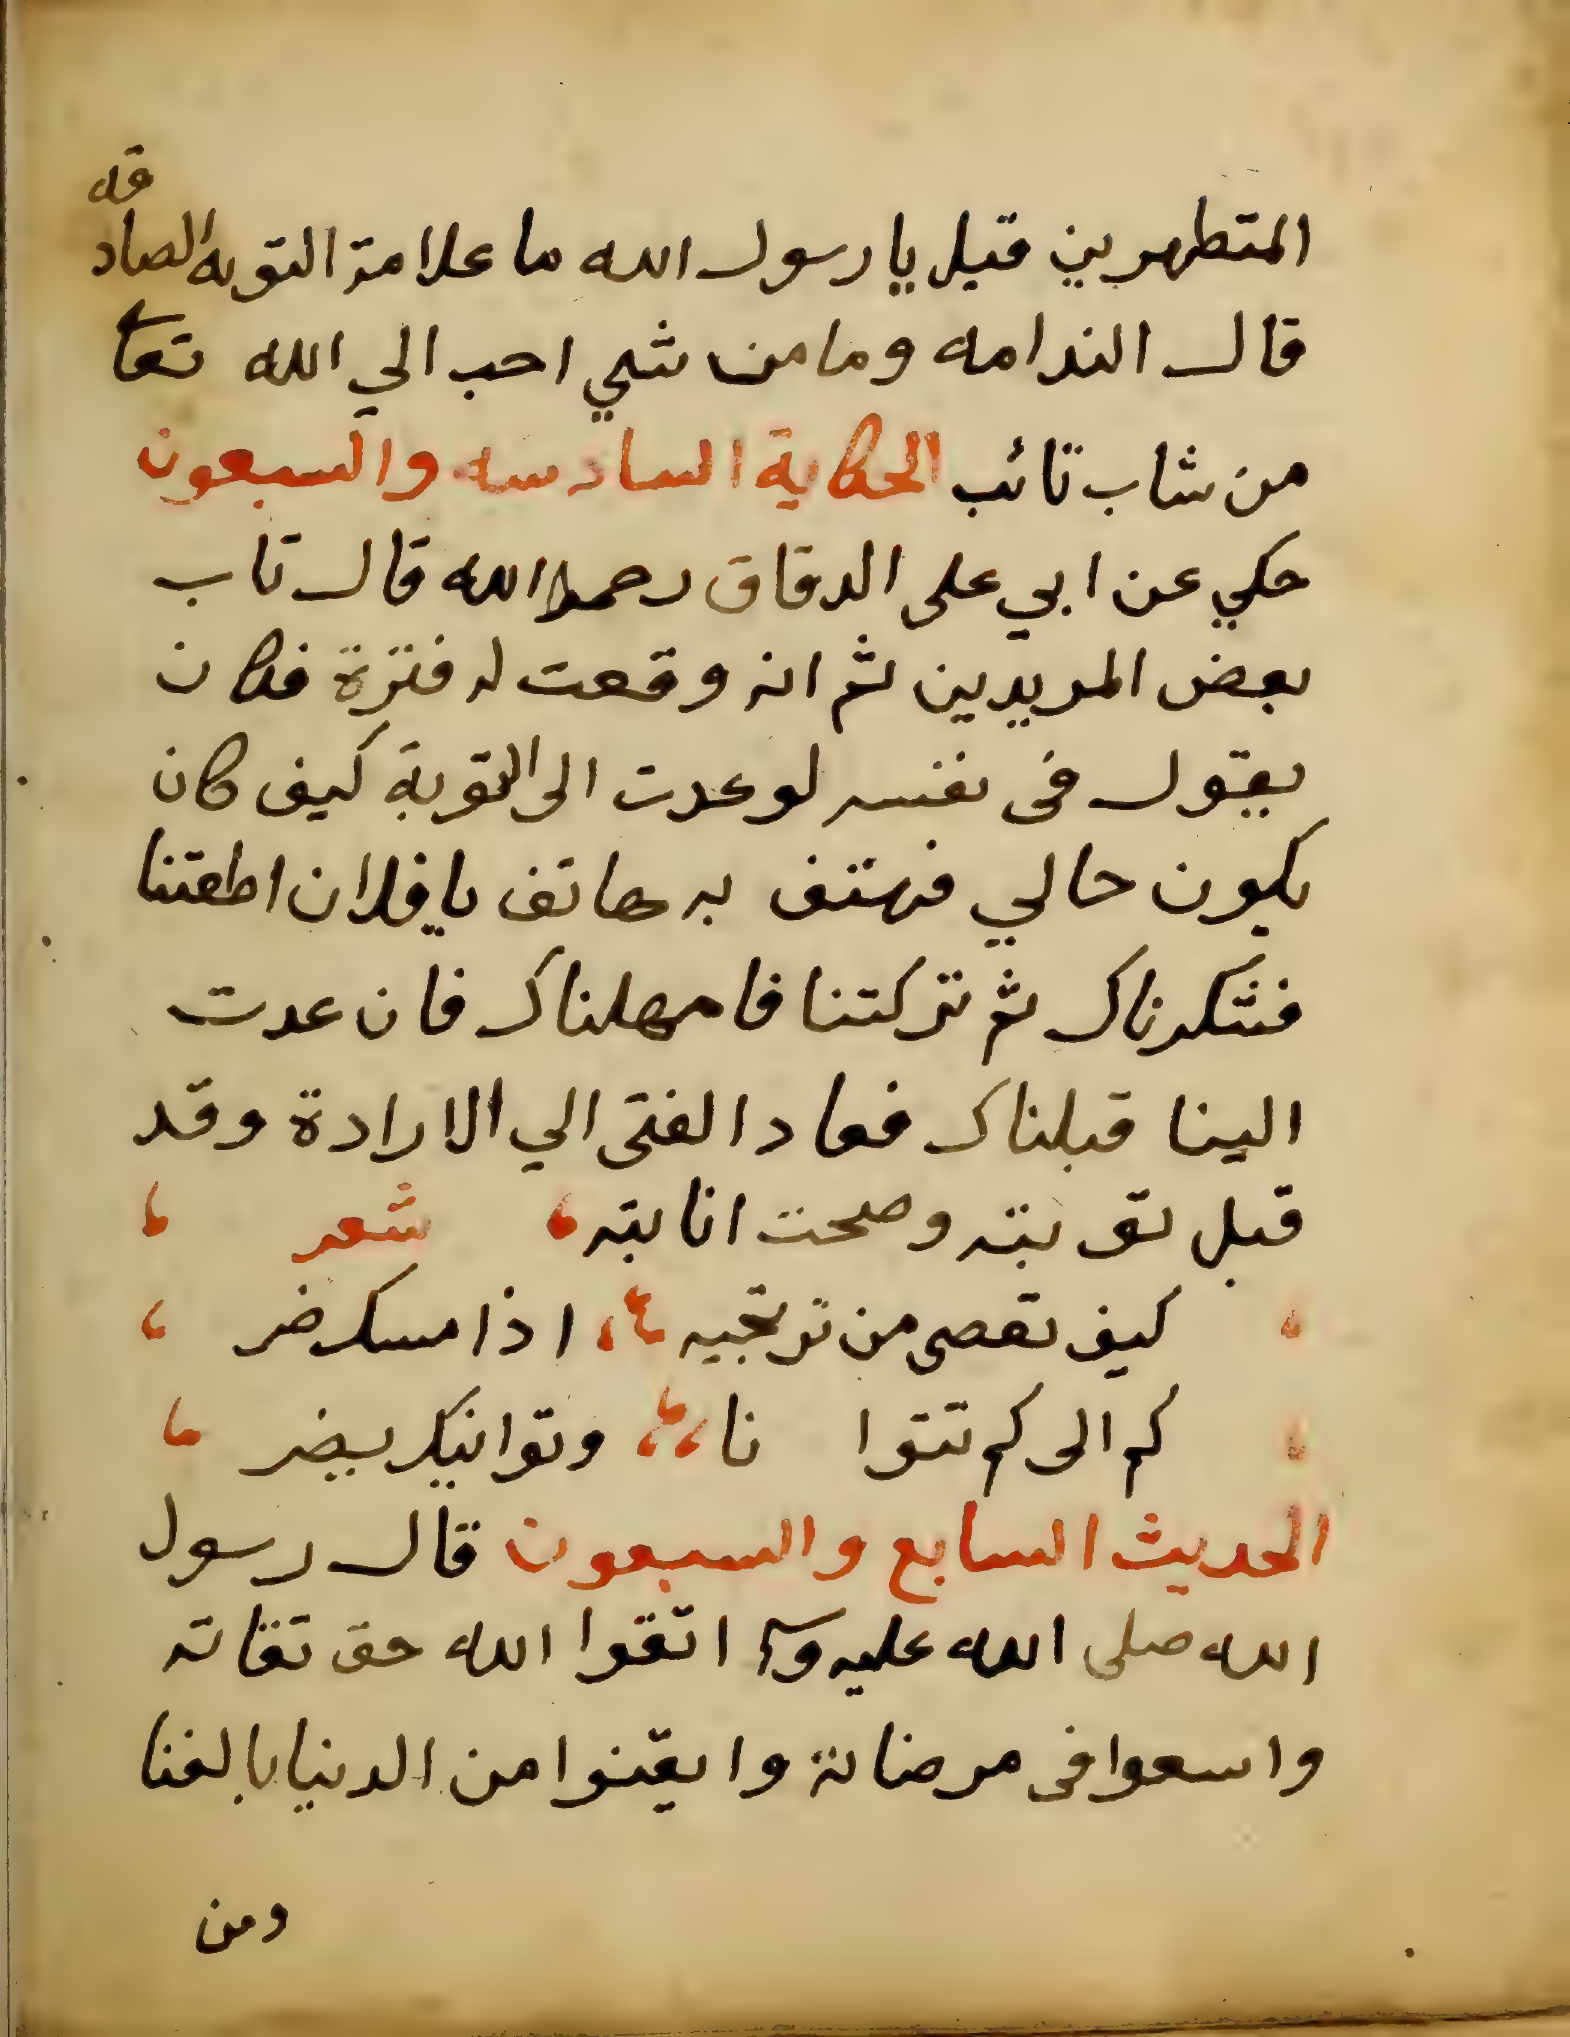 المتطهرين قيل يا رسول الله ما علامة التوبه الصادقه
قال الندامه وما من شي احب الي الله تعا
من شاب تائب الحكاية السادسه والسبعون
حكي عن ابي على الدقاق رحمه الله قال تاب
بعض المريدين ثم انه وقعت له فترة فكان
يقول فى نفسه لو عدت الى التوبة كيف كان
يكون حالي فهتف به هاتف يا فلان اطعتنا
فشكرناك ثم تركتنا فامهلناك فان عدت
الينا قبلناك فعاد الفتى الي الارادة وقد
قبل توبته وصحت انابته شعر
كيف تعصى من ترتجيه اذا مسك ضر
كم الى كم تتوا نا وتوانيك يضر
الحديث السابع والسبعون قال رسول
الله صلى الله عليه اتقوا الله حق تقاته
واسعوا فى مرضاته وايقنوا من الدنيا بالفنا
ومن